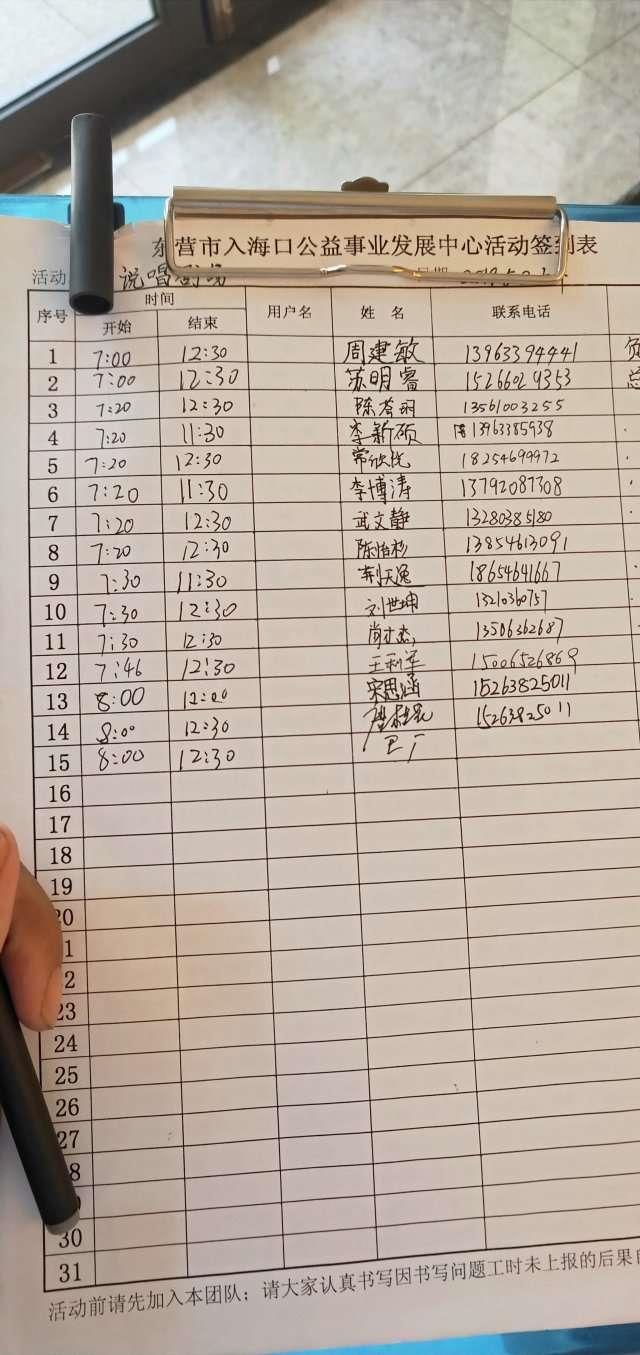 东营市入海口公益事业发展中心活动签到表
活动 说唱
序号 时间 用户名 姓 名 联系电话
开始 结束
1 7:00 12:30 周建敏 13963394441
2 7:00 12:30 苏明睿 15266029353
3 7:20 12:30 13561003255
4 7:20 11:30 李新硕 13963385938
5 7:20 12:30 18254699972
6 7:20 11:30 李博涛 13792087308
7 7:20 12:30 武文静 13280385180
8 7:20 12:30 陈怡杉 13854613091
9 7:30 11:30 荆天逸 18654641667
10 7:30 12:30 刘世坤 13210360757
11 7:30 12:30 肖 13506362687
12 7:46 12:30 王利军 15006526869
13 8:00 12:00 宋思涵 15263825011
14 8:00 12:30 15263825011
15 8:00 12:30
16
17
18
19
20
1
2
23
24
25
26
27
8
30
31
活动前请先加入本团队；请大家认真书写因书写问题工时未上报的后果